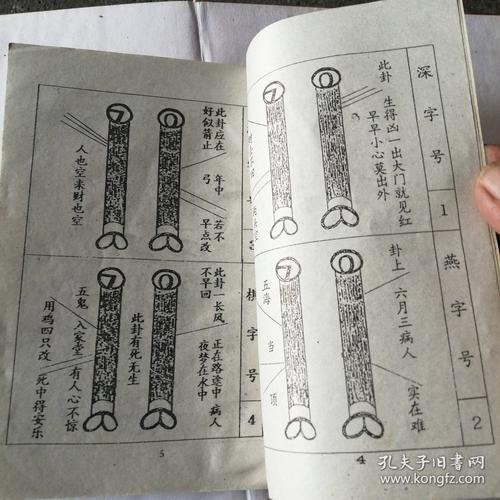 深字号
1
此卦
生得凶一出大门就见红
早早小心莫出外
燕字号
2
卦上
六月三病人
实在难
五海
当
项
4
此卦应在
好似箭止
弓
年中
若不
早点改
人也空来财也空
棋字号
4
此卦一长风
不早回
正在路途中
病人
夜梦在水中
此卦有死无生
五鬼
入家堂
有人心不惊
用鸡四只改
死中得安乐
5
孔夫子旧书网
www.kongfz.com